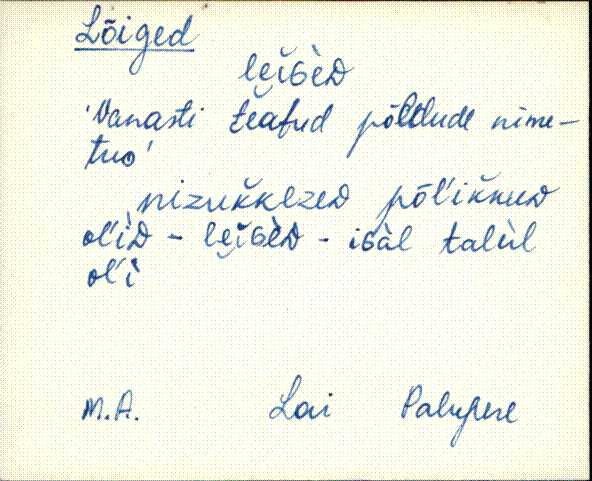 Lõiged
leiɢèᴅ
'Vanasti teatud põldude nime-
tus'
nizukkezeᴅ põĺiknuᴅ
oĺìᴅ - leiɢèᴅ - iɢàl talùl
oĺì
M.A. Lai Palupere